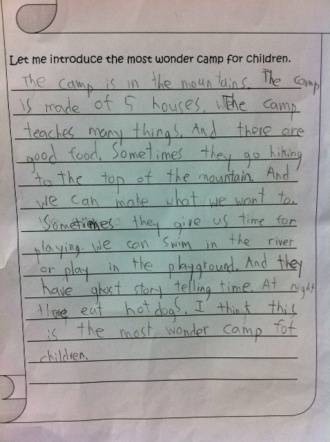 Let me introduce the most wonder camp for children.
The camp is in the mountains. The camp
is made of 5 houses. The camp
teaches many things. And there are
good food. Sometimes they go hiking
to the top of the mountain. And
we can make what we want to.
Sometimes they give us time for
playing. We can swim in the river
or play in the playground. And they
have ghost story telling time. At night
eat hotdogs. I think this
is the most wonder camp for
children.